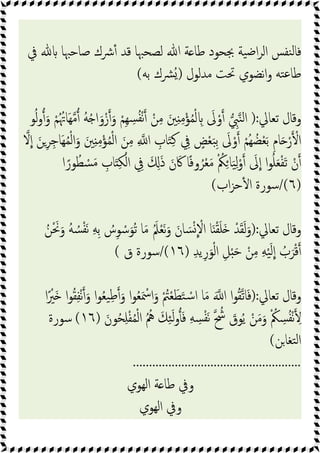 فالنفس الراضية بجحود طاعة الله لصحبها قد أشرك صاحبها بالله في
طاعته وانضوي تحت مدلول (يُشرك به)
وقال تعالي:( النَّبِيُّ أَوْلَى بِالْمُؤْمِنِينَ مِنْ أَنْفُسِهِمْ وَأَزْوَاجُهُ أُمَّهَاتُهُمْ وَأُولُو
الْأَرْحَامِ بَعْضُهُمْ أَوْلَى بِبَعْضٍ فِي كِتَابِ اللَّهِ مِنَ الْمُؤْمِنِينَ وَالْمُهَاجِرِينَ إِلَّا
أَنْ تَفْعَلُوا إِلَى أَوْلِيَائِكُمْ مَعْرُوفًا كَانَ ذَلِكَ فِي الْكِتَابِ مَسْطُورًا
(٦)/سورة الأحزاب)
وقال تعالي:(وَلَقَدْ خَلَقْنَا الْإِنْسَانَ وَنَعْلَمُ مَا تُوَسْوِسُ بِهِ نَفْسُهُ وَنَحْنُ
أَقْرَبُ إِلَيْهِ مِنْ حَبْلِ الْوَرِيدِ (١٦)/سورة ق )
وقال تعالي:(فَاتَّقُوا اللَّهَ مَا اسْتَطَعْتُمْ وَاسْمَعُوا وَأَطِيعُوا وَأَنْفِقُوا خَيْرًا
لِأَنْفُسِكُمْ وَمَنْ يُوقَ شُحَّ نَفْسِهِ فَأُولَئِكَ هُمُ الْمُفْلِحُونَ (١٦) سورة
التغابن)
..................................................
وفي طاعة الهوي
وفي الهوي